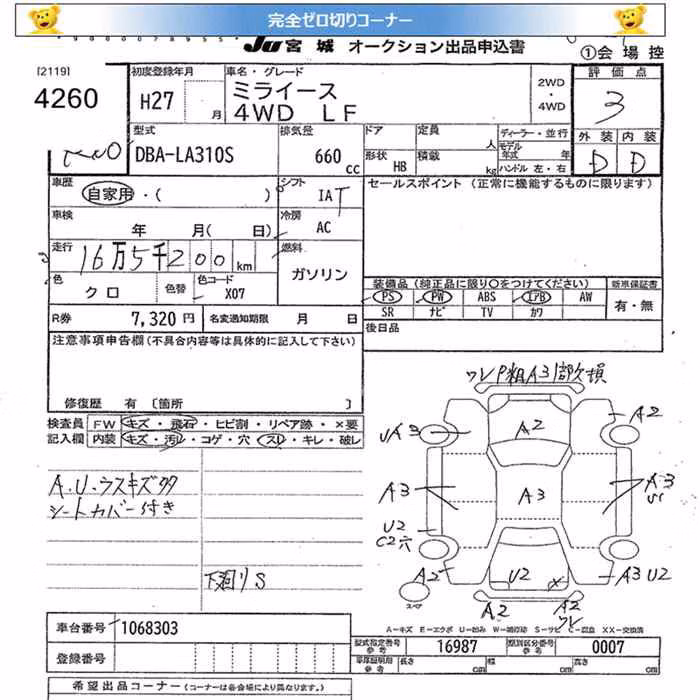 完全ゼロ切りコーナー
JU宮城 オークション出品申込書
①会場控
[2119]
4260
初度登録年月
H27 月
車名・グレード
ミライース
4WD LF
2WD・4WD
評価点
3
型式
DBA-LA310S
排気量
660 cc
ドア
定員 人
形状 HB
積載 kg
ディーラー・並行
モデル年式 年
ハンドル 左・右
外装 内装
D D
車歴
自家用・( )
シフト
IAT
セールスポイント (正常に機能するものに限ります)
車検
年 月( 日)
冷房
AC
走行
16万5千200km
燃料
ガソリン
色
クロ
色替
色コード
X07
装備品(純正品に限り○をつけてください)
PS PW ABS エアB AW
SR ナビ TV カワ
新車保証書
有・無
R券 7,320円
名変通知期限 月 日
後日品
注意事項申告欄(不具合内容等は具体的に記入して下さい)
修復歴 有 [箇所 ]
検査員記入欄
FW キズ・飛石・ヒビ割・リペア跡・×要
内装 キズ・汚レ・コゲ・穴・スレ・キレ・破レ
A.U.ウスキズ多
シートカバー付き
下廻りS
ワレP粗A3欠損
UA3
A2
A2
A3
A3
A3
U2
C2穴
A2
U2
X
A3 U2
A2
A2
ワレ
スペア
A-キズ E-エクボ U-凹み W-補修跡 S-サビ C-腐食 XX-交換済
車台番号 1068303
登録番号
型式指定番号 参考 16987
類別区分番号 参考 0007
車庫証明用 参考
長さ cm
幅 cm
高さ cm
希望出品コーナー(コーナーは各会場により異なります。)